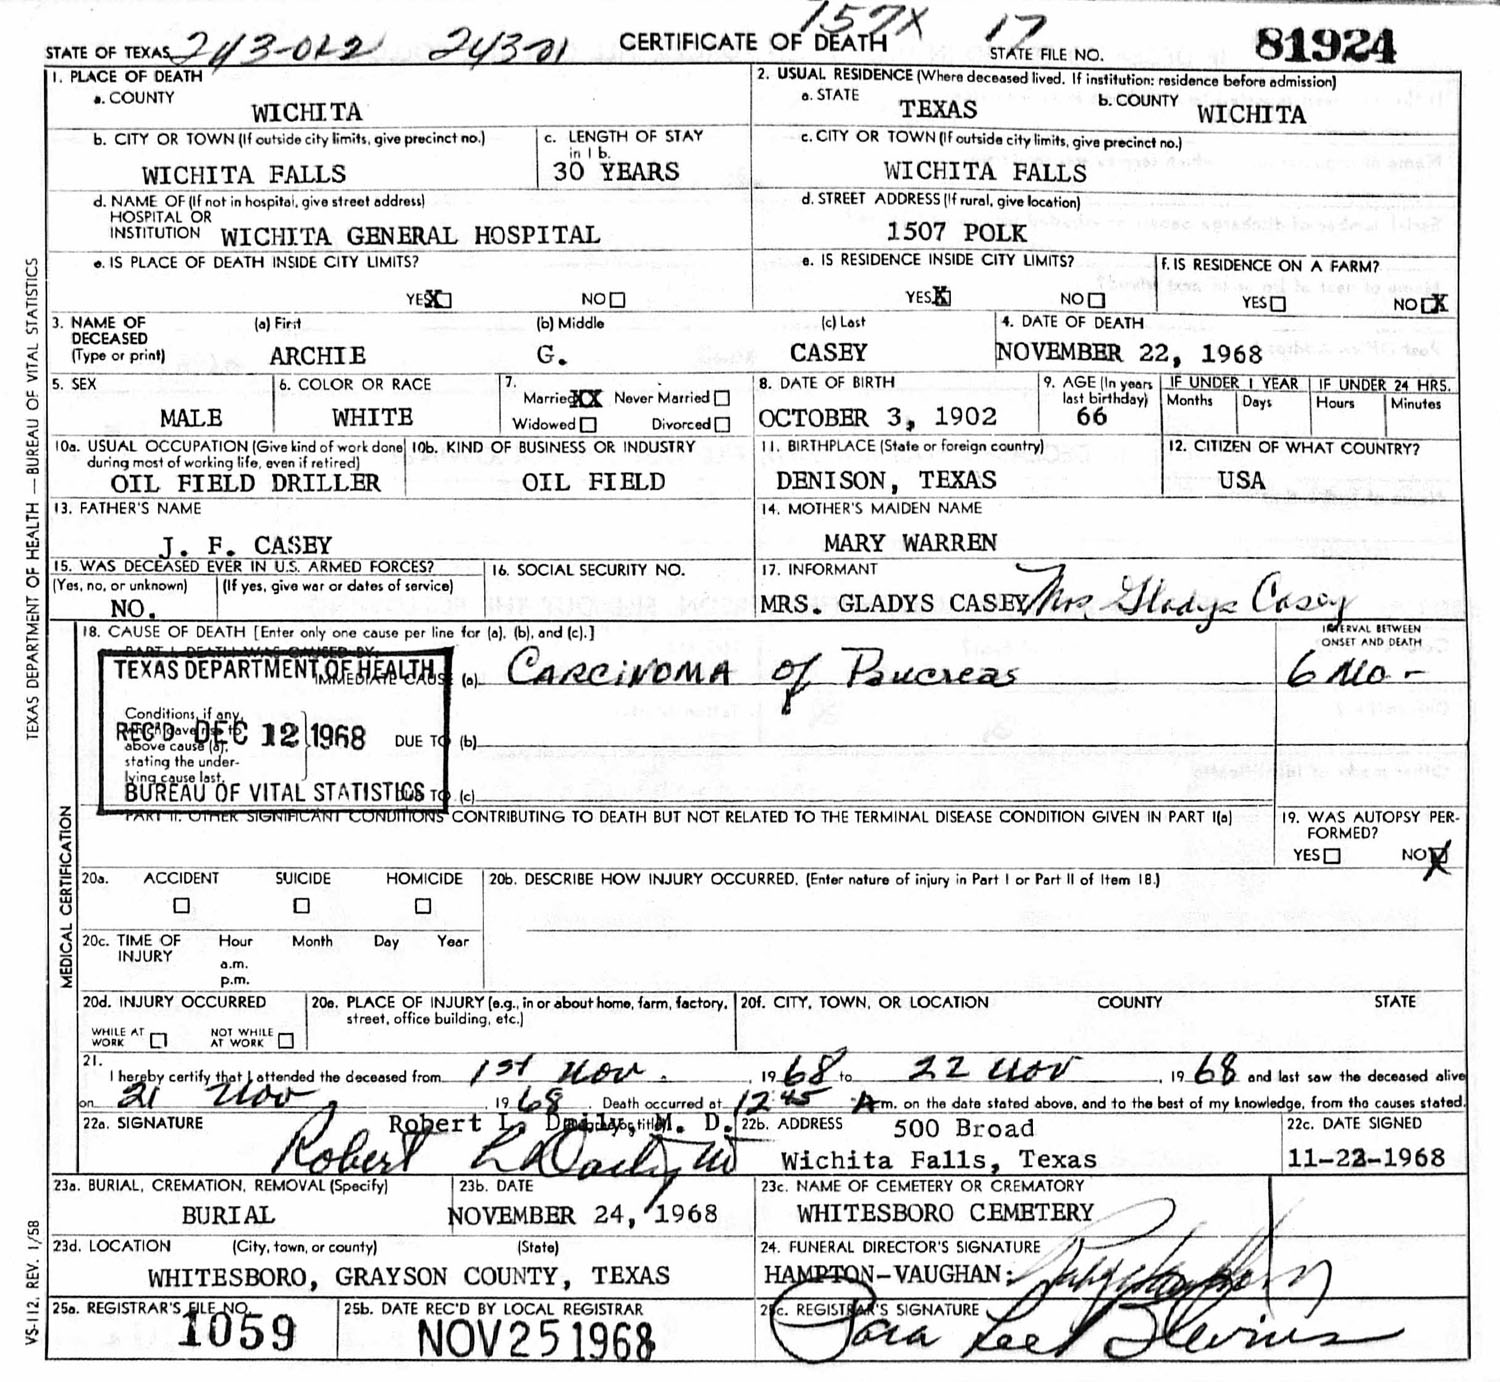 157X 17
STATE OF TEXAS 243-012 243-01 CERTIFICATE OF DEATH STATE FILE NO. 81924
1. PLACE OF DEATH
a. COUNTY
WICHITA
2. USUAL RESIDENCE (Where deceased lived. If institution: residence before admission)
a. STATE TEXAS b. COUNTY WICHITA
b. CITY OR TOWN (If outside city limits, give precinct no.)
WICHITA FALLS
c. LENGTH OF STAY
in 1 b.
30 YEARS
c. CITY OR TOWN (If outside city limits, give precinct no.)
WICHITA FALLS
d. NAME OF (If not in hospital, give street address)
HOSPITAL OR
INSTITUTION WICHITA GENERAL HOSPITAL
d. STREET ADDRESS (If rural, give location)
1507 POLK
e. IS PLACE OF DEATH INSIDE CITY LIMITS?
YES X NO
e. IS RESIDENCE INSIDE CITY LIMITS?
YES X NO
f. IS RESIDENCE ON A FARM?
YES NO X
3. NAME OF
DECEASED
(Type or print)
(a) First (b) Middle (c) Last
ARCHIE G. CASEY
4. DATE OF DEATH
NOVEMBER 22, 1968
5. SEX
MALE
6. COLOR OR RACE
WHITE
7.
Married XX Never Married
Widowed Divorced
8. DATE OF BIRTH
OCTOBER 3, 1902
9. AGE (In years
last birthday)
66
IF UNDER 1 YEAR IF UNDER 24 HRS.
Months Days Hours Minutes
10a. USUAL OCCUPATION (Give kind of work done
during most of working life, even if retired)
OIL FIELD DRILLER
10b. KIND OF BUSINESS OR INDUSTRY
OIL FIELD
11. BIRTHPLACE (State or foreign country)
DENISON, TEXAS
12. CITIZEN OF WHAT COUNTRY?
USA
13. FATHER'S NAME
J. F. CASEY
14. MOTHER'S MAIDEN NAME
MARY WARREN
15. WAS DECEASED EVER IN U.S. ARMED FORCES?
(Yes, no, or unknown) (If yes, give war or dates of service)
NO.
16. SOCIAL SECURITY NO.
17. INFORMANT
MRS. GLADYS CASEY Mrs Gladys Casey
18. CAUSE OF DEATH [Enter only one cause per line for (a), (b), and (c).]
INTERVAL BETWEEN
ONSET AND DEATH
PART I. DEATH WAS CAUSED BY:
IMMEDIATE CAUSE (a) CARCINOMA of Pancreas 6 Mo -
Conditions, if any,
which gave rise to
above cause (a),
stating the under-
lying cause last.
DUE TO (b)
DUE TO (c)
TEXAS DEPARTMENT OF HEALTH
REC'D DEC 12 1968
BUREAU OF VITAL STATISTICS
PART II. OTHER SIGNIFICANT CONDITIONS CONTRIBUTING TO DEATH BUT NOT RELATED TO THE TERMINAL DISEASE CONDITION GIVEN IN PART I(a)
19. WAS AUTOPSY PER-
FORMED?
YES NO X
20a. ACCIDENT SUICIDE HOMICIDE
20b. DESCRIBE HOW INJURY OCCURRED. (Enter nature of injury in Part I or Part II of Item 18.)
20c. TIME OF
INJURY
Hour Month Day Year
a.m.
p.m.
20d. INJURY OCCURRED
WHILE AT
WORK
NOT WHILE
AT WORK
20e. PLACE OF INJURY (e.g., in or about home, farm, factory,
street, office building, etc.)
20f. CITY, TOWN, OR LOCATION COUNTY STATE
21.
I hereby certify that I attended the deceased from 1st Nov. , 19 68 to 22 Nov , 19 68 and last saw the deceased alive
on 21 Nov , 19 68 . Death occurred at 12:45 A m. on the date stated above, and to the best of my knowledge, from the causes stated.
22a. SIGNATURE Robert L. Daily, M. D.
22b. ADDRESS 500 Broad
Wichita Falls, Texas
22c. DATE SIGNED
11-22-1968
23a. BURIAL, CREMATION, REMOVAL (Specify)
BURIAL
23b. DATE
NOVEMBER 24, 1968
23c. NAME OF CEMETERY OR CREMATORY
WHITESBORO CEMETERY
23d. LOCATION (City, town, or county) (State)
WHITESBORO, GRAYSON COUNTY, TEXAS
24. FUNERAL DIRECTOR'S SIGNATURE
HAMPTON-VAUGHAN:
25a. REGISTRAR'S FILE NO.
1059
25b. DATE REC'D BY LOCAL REGISTRAR
NOV 25 1968
25c. REGISTRAR'S SIGNATURE
TEXAS DEPARTMENT OF HEALTH — BUREAU OF VITAL STATISTICS
MEDICAL CERTIFICATION
VS-112, REV. 1/58